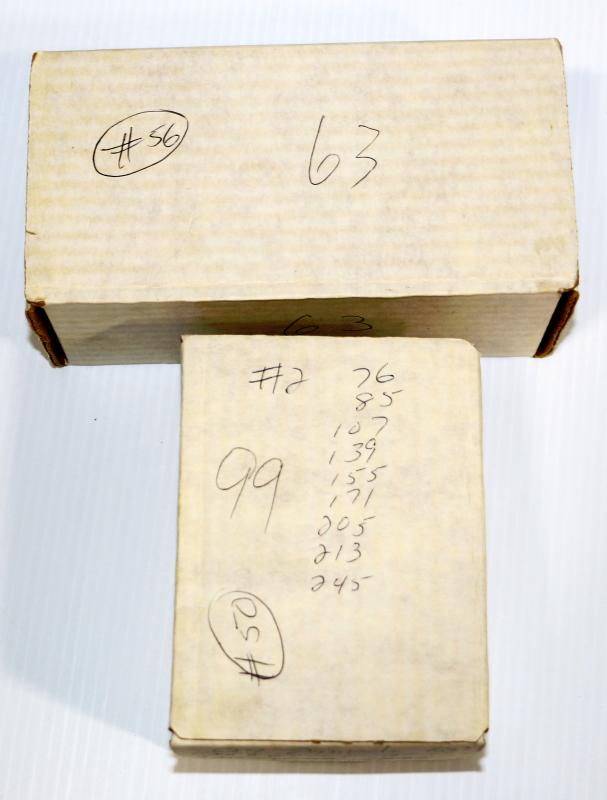 #56 63
63
#2 76
85
107
139
99 155
171
205
213
245
#50